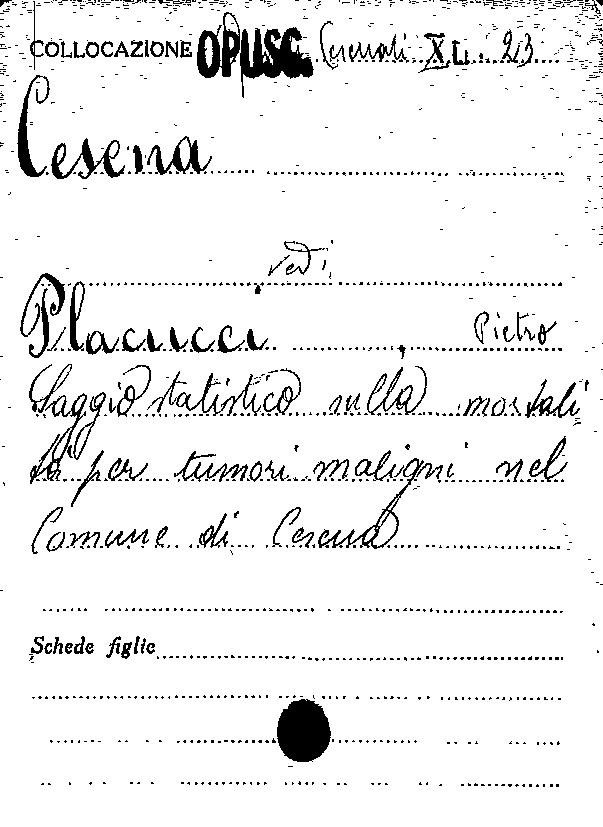 COLLOCAZIONE OPUSC. Cesenati XLI. 23
Cesena
vedi
Placucci, Pietro
Saggio statistico sulla mortali
tà per tumori maligni nel
Comune di Cesena
Schede figlie